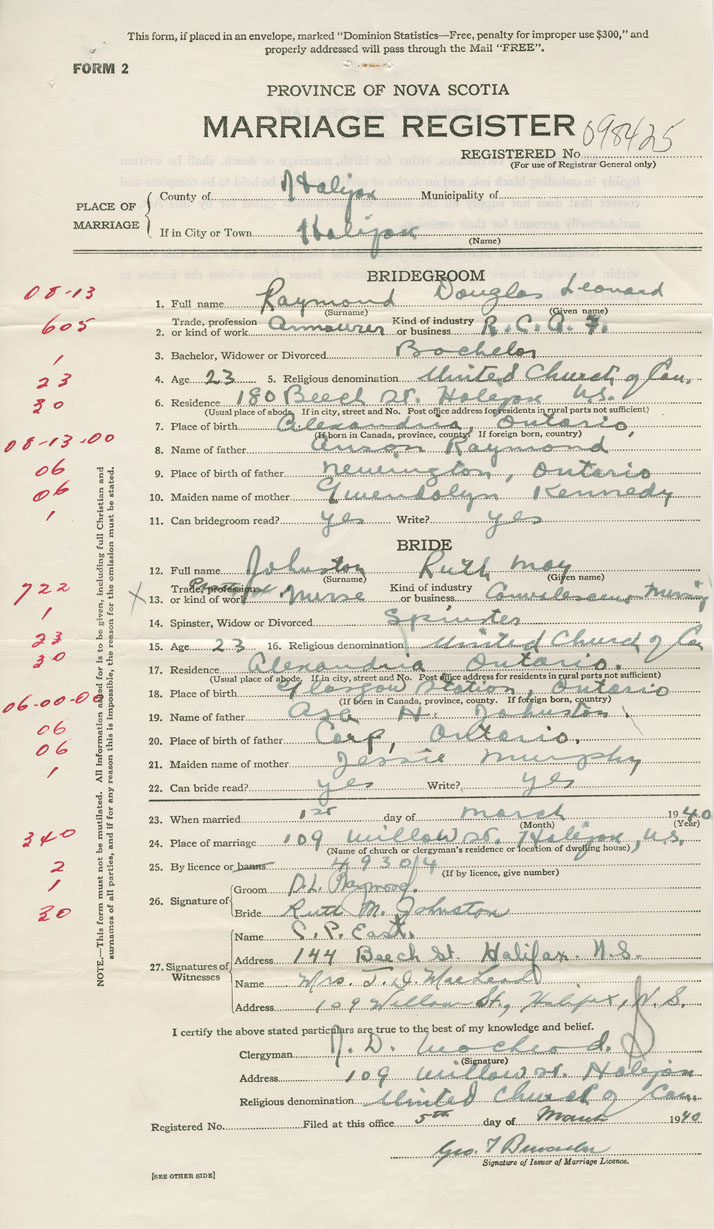 This form, if placed in an envelope, marked "Dominion Statistics—Free, penalty for improper use $300," and
properly addressed will pass through the Mail "FREE".
FORM 2
PROVINCE OF NOVA SCOTIA
MARRIAGE REGISTER 098425
REGISTERED No
(For use of Registrar General only)
PLACE OF MARRIAGE
County of Halifax Municipality of
If in City or Town Halifax
(Name)
BRIDEGROOM
08-13
1. Full name Raymond Douglas Leonard
(Surname) (Given name)
605
2. Trade, profession or kind of work Armourer Kind of industry or business R.C.A.F.
1
3. Bachelor, Widower or Divorced Bachelor
23
4. Age 23 5. Religious denomination United Church of Can.
30
6. Residence 180 Beech St. Halifax N.S.
(Usual place of abode. If in city, street and No. Post office address for residents in rural parts not sufficient)
7. Place of birth Alexandria, Ontario,
(If born in Canada, province, county. If foreign born, country)
08-13-00
8. Name of father Anson Raymond
06
9. Place of birth of father Newington, Ontario
06
10. Maiden name of mother Gwendolyn Kennedy
1
11. Can bridegroom read? yes Write? yes
BRIDE
12. Full name Johnston Ruth May
(Surname) (Given name)
722
13. Trade, profession or kind of work Nurse Kind of industry or business Convalescent Nursing
1
14. Spinster, Widow or Divorced Spinster
23
15. Age 23 16. Religious denomination United Church of Can
30
17. Residence Alexandria Ontario.
(Usual place of abode. If in city, street and No. Post office address for residents in rural parts not sufficient)
06-00-00
18. Place of birth Glasgow Station, Ontario
(If born in Canada, province, county. If foreign born, country)
19. Name of father Asa H. Johnston
06
20. Place of birth of father Carp, Ontario.
06
21. Maiden name of mother Jessie Murphy
1
22. Can bride read? yes Write? yes
23. When married 1st day of March 1940
(Month) (Year)
340
24. Place of marriage 109 Willow St. Halifax, N.S.
(Name of church or clergyman's residence or location of dwelling house)
2
25. By licence or banns 49304
(If by licence, give number)
1
26. Signature of
Groom D.L. Raymond.
30
Bride Ruth M. Johnston
27. Signatures of Witnesses
Name C.P. East.
Address 144 Beech St. Halifax. N.S.
Name Mrs. J. D. MacLeod
Address 109 Willow St., Halifax, N.S.
NOTE.—This form must not be mutilated. All information asked for is to be given, including full Christian and
surnames of all parties, and if for any reason this is impossible, the reason for the omission must be stated.
I certify the above stated particulars are true to the best of my knowledge and belief.
Clergyman J. D. Macleod.
(Signature)
Address 109 Willow St. Halifax
Religious denomination United Church of Can.
Registered No. Filed at this office 5th day of March 1940
Geo. T
Signature of Issuer of Marriage Licence.
[SEE OTHER SIDE]